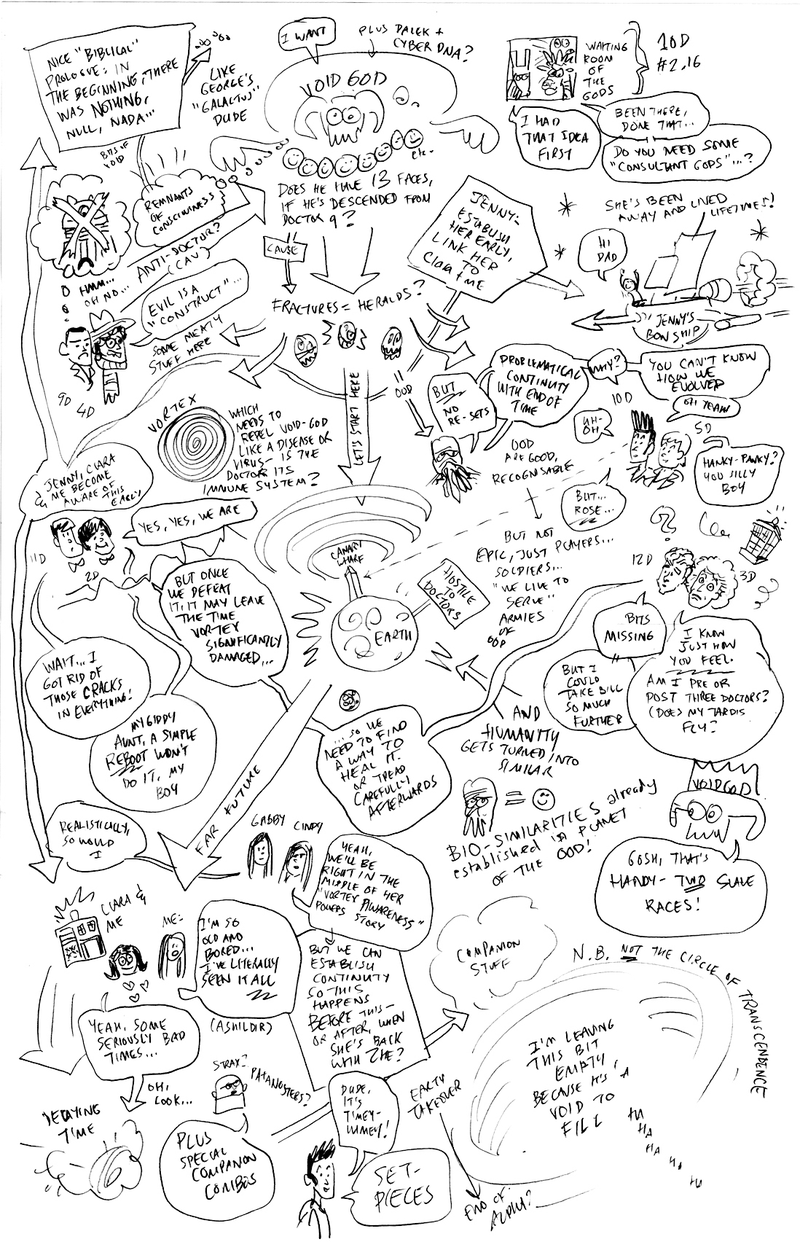 NICE "BIBLICAL"
PROLOGUE: IN
THE BEGINNING, THERE
WAS NOTHING,
NULL, NADA...
LIKE
GEORGE'S
"GALACTUS"
DUDE
I WANT
PLUS DALEK +
CYBER DNA?
VOID GOD
ETC.
DOES HE HAVE 13 FACES,
IF HE'S DESCENDED FROM
DOCTOR 9?
WAITING
ROOM
OF
THE
GODS
10D
#2.16
I HAD
THAT IDEA
FIRST
BEEN THERE,
DONE THAT...
DO YOU NEED SOME
"CONSULTANT GODS"...?
BITS OF
VOID
REMNANTS
OF
CONSCIOUSNESS
ANTI-DOCTOR?
(CAV)
HMM...
OH NO...
EVIL IS A
"CONSTRUCT"...
SOME MEATY
STUFF HERE
9D 4D
CAUSE
FRACTURES = HERALDS?
JENNY -
ESTABLISH
HER EARLY,
LINK HER
TO
CLARA + ME
SHE'S BEEN LIVED
AWAY AND LIFETIMES!
HI
DAD
JENNY'S
BOWSHIP
LET'S START HERE
OOD
BUT
NO
RE-SETS
PROBLEMATICAL
CONTINUITY
WITH END OF
TIME
WHY?
YOU CAN'T KNOW
HOW WE
EVOLVED
OH YEAH
10D
5D
UH-
OH
HANKY-PANKY?
YOU SILLY
BOY
BUT...
ROSE...
VORTEX
WHICH
NEEDS TO
REPEL VOID-GOD
LIKE A DISEASE OR
VIRUS - IS THE
DOCTOR ITS
IMMUNE SYSTEM?
OOD
ARE GOOD,
RECOGNISABLE
BUT NOT
EPIC, JUST PLAYERS...
SOLDIERS...
"WE LIVE TO
SERVE"
ARMIES
OF
OOD
JENNY, CLARA
& ME BECOME
AWARE OF THIS
EARLY
YES, YES, WE ARE
11D
2D
BUT ONCE
WE DEFEAT
IT, IT MAY LEAVE
THE TIME
VORTEX
SIGNIFICANTLY
DAMAGED...
CANARY
WHARF
EARTH
HOSTILE
TO
DOCTORS
12D
3D
BITS
MISSING
I KNOW
JUST HOW
YOU FEEL.
AM I PRE OR
POST THREE DOCTORS?
(DOES MY TARDIS
FLY?
BUT I
COULD
TAKE BILL
SO MUCH
FURTHER
WAIT... I
GOT RID OF
THOSE CRACKS
IN EVERYTHING!
MY GIDDY
AUNT, A SIMPLE
REBOOT WON'T
DO IT, MY
BOY
...SO WE
NEED TO FIND
A WAY TO
HEAL IT.
OR TREAD
CAREFULLY
AFTERWARDS
AND
HUMANITY
GETS TURNED INTO
SIMILAR
BIO-SIMILARITIES already
established in PLANET
OF THE OOD!
VOID GOD
GOSH, THAT'S
HANDY - TWO SLAVE
RACES!
FAR FUTURE
REALISTICALLY,
SO WOULD
I
GABBY CINDY
YEAH,
WE'LL BE
RIGHT IN THE
MIDDLE OF HER
"VORTEX AWARENESS"
POWERS STORY
BUT WE CAN
ESTABLISH
CONTINUITY
SO THIS
HAPPENS
BEFORE THIS -
OR AFTER, WHEN
SHE'S BACK
WITH THE?
CLARA &
ME
ME:
I'M SO
OLD AND
BORED...
I'VE LITERALLY
SEEN IT ALL
(ASHILDIR)
YEAH, SOME
SERIOUSLY BAD
TIMES...
OH,
LOOK...
DECAYING
TIME
STRAX?
PATANOSTERS?
PLUS
SPECIAL
COMPANION
COMBOS
DUDE,
IT'S
TIMEY-
WIMEY!
SET-
PIECES
COMPANION
STUFF
EARTH
TAKEOVER
END OF
ALPHA?
N.B. NOT THE CIRCLE OF TRANSCENDENCE
I'M LEAVING
THIS BIT
EMPTY,
BECAUSE IT'S A
VOID TO
FILL
HA
HA
HA HA HA